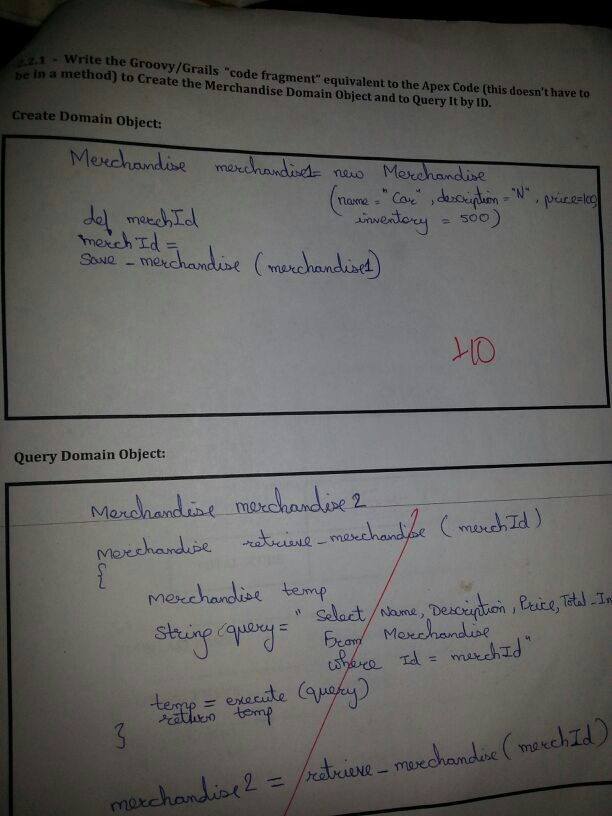 2.2.1 - Write the Groovy/Grails "code fragment" equivalent to the Apex Code (this doesn't have to
be in a method) to Create the Merchandise Domain Object and to Query It by ID.
Create Domain Object:
Merchandise merchandise1= new Merchandise
(name = "Car", description = "N", price=100
inventory = 500)
def merchId
merchId =
save_merchandise (merchandise1)
+10
Query Domain Object:
Merchandise merchandise2
Merchandise retrieve_merchandise (merchId)
{
Merchandise temp
String query = " Select Name, Description, Price, Total_In
From Merchandise
where Id = merchId"
temp = execute (query)
return temp
}
merchandise2 = retrieve_merchandise (merchId)